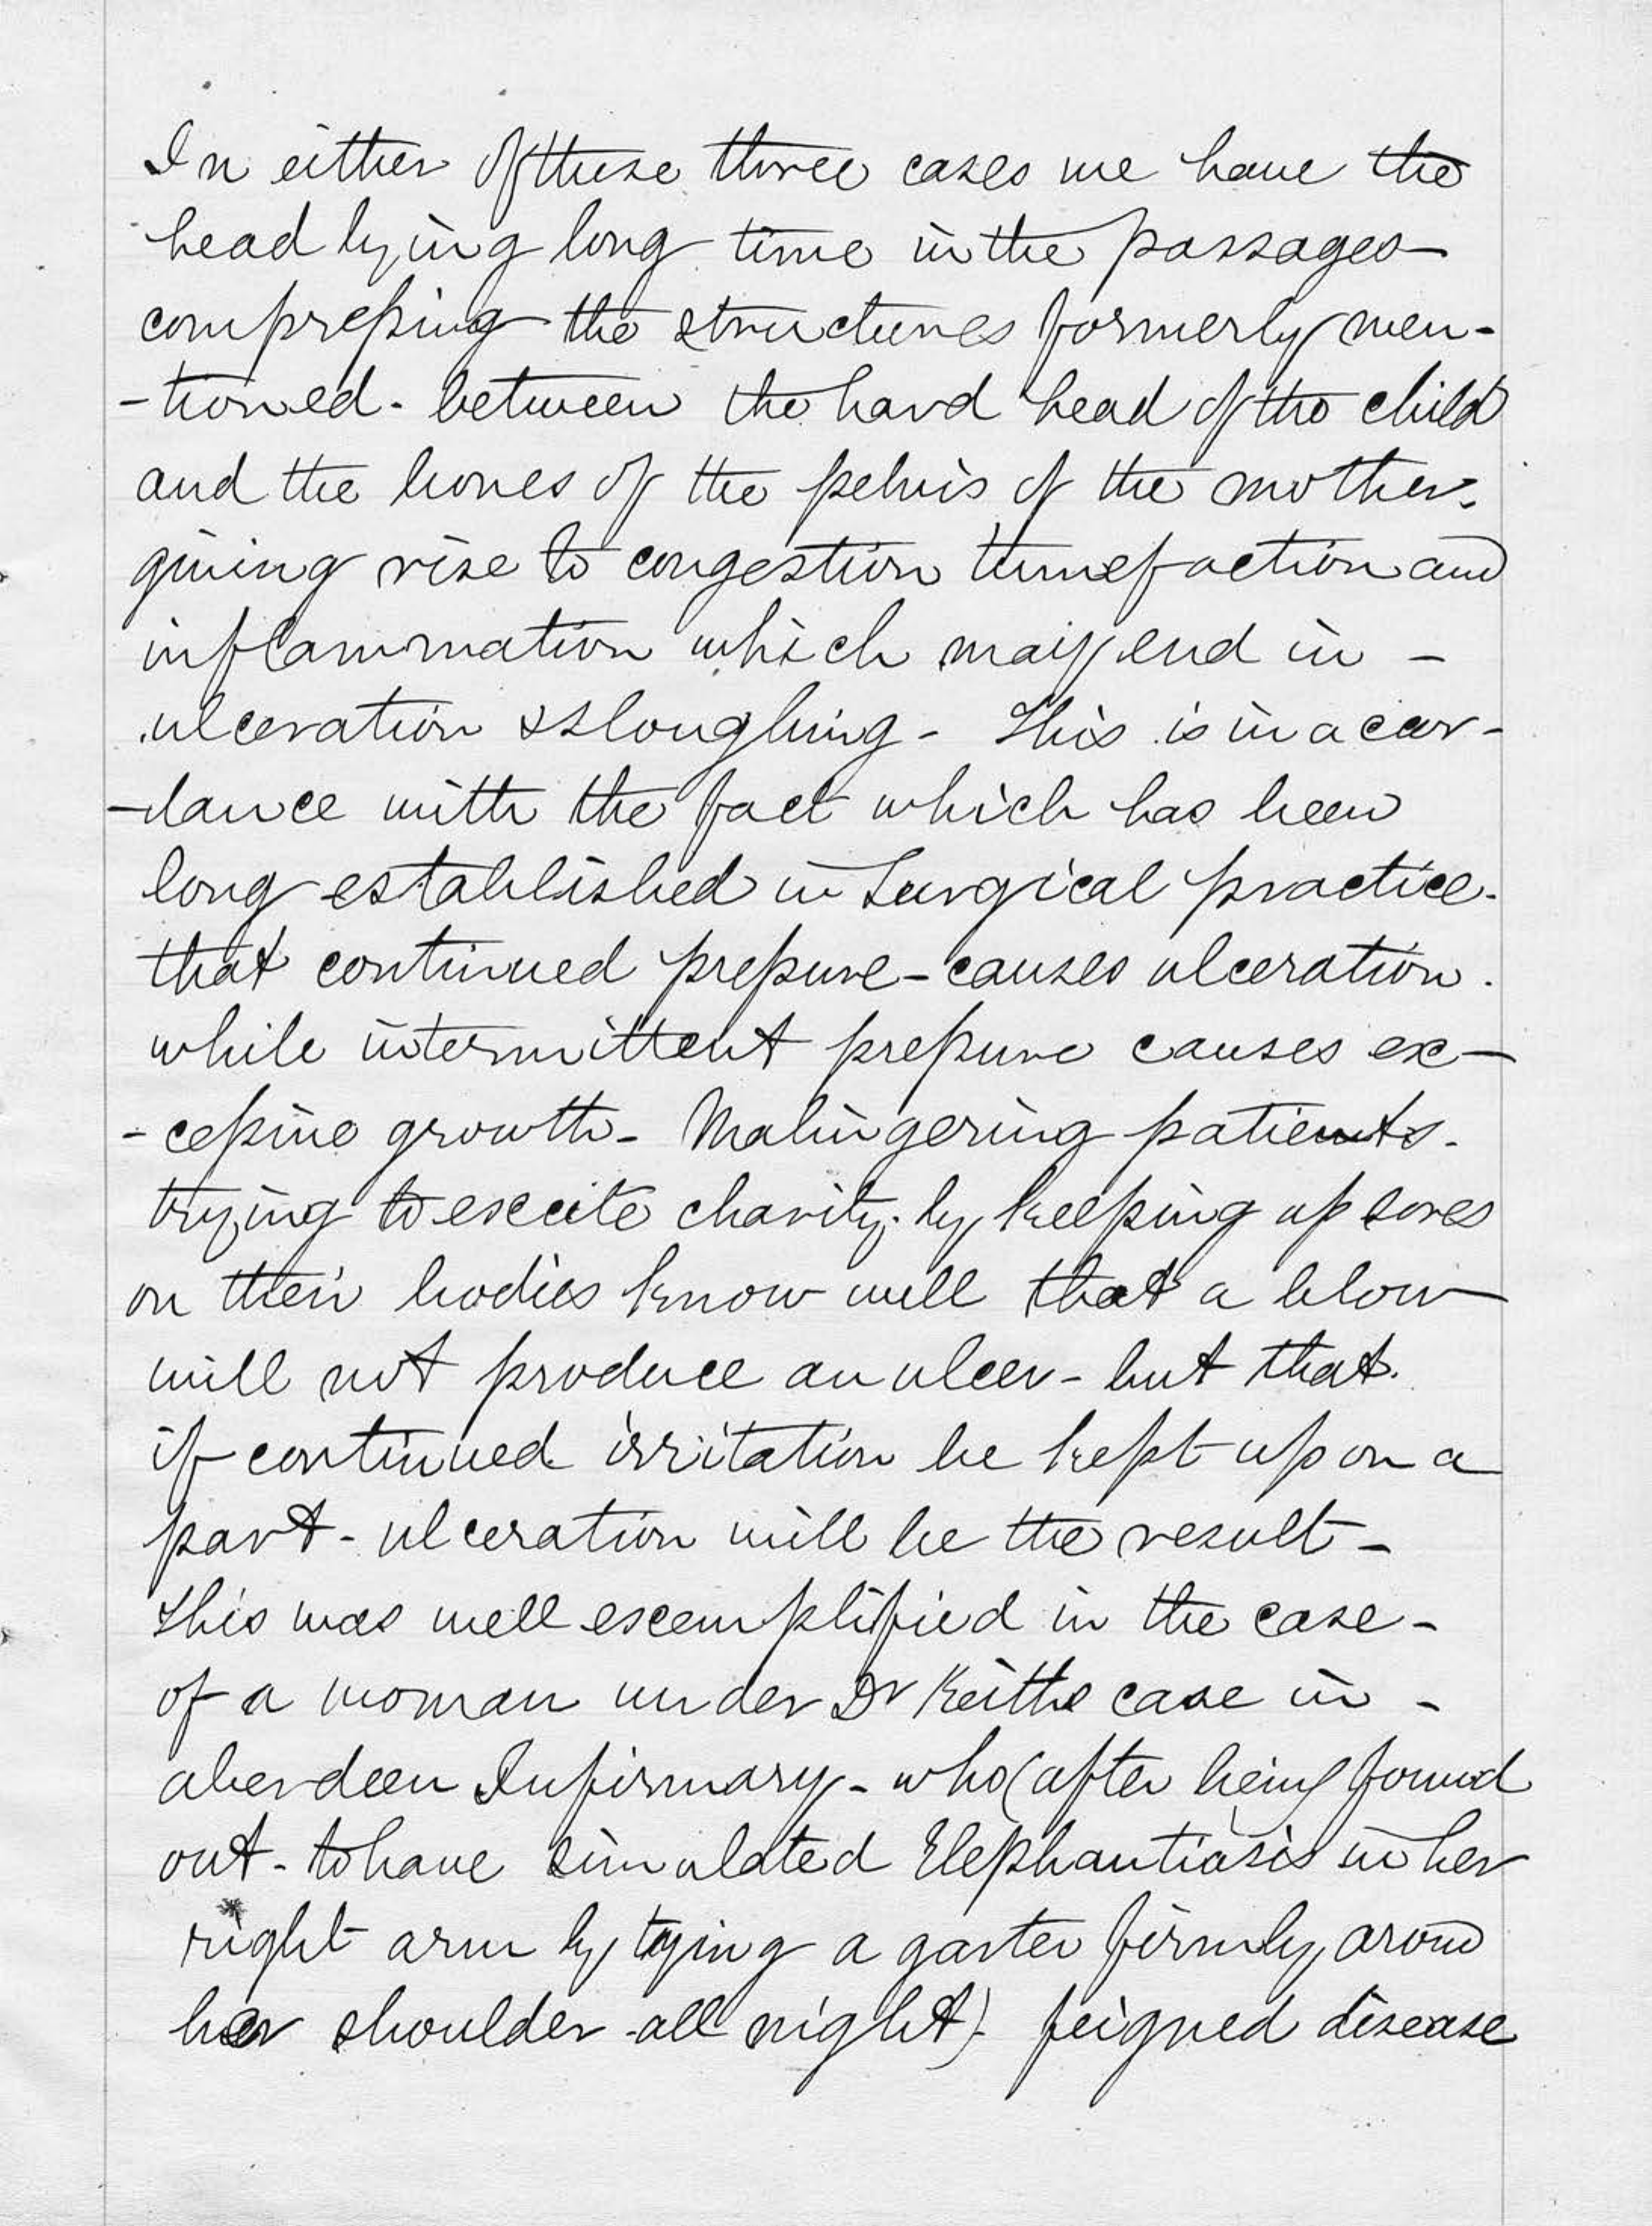 In either of these three cases we have the
head lying long time in the passages
compressing the structures formerly men-
-tioned - between the hard head of the child
and the bones of the pelvis of the mother.
giving rise to congestion tumefaction and
inflammation which may end in -
ulceration & sloughing - This is in accor-
-dance with the fact which has been
long established in Surgical practice.
that continued pressure - causes ulceration.
while intermittent pressure causes ex-
-cessive growth - Malingering patients.
trying to excite charity. by keeping up sores
on their bodies know well that a blow
will not produce an ulcer - but that.
if continued irritation be kept up on a
part - ulceration will be the result -
This was well exemplified in the case -
of a woman under Dr Keiths care in -
aberdeen Infirmary - who (after being found
out - to have simulated Elephantiasis in her
right arm by tying a garter firmly around
her shoulder all night) feigned disease